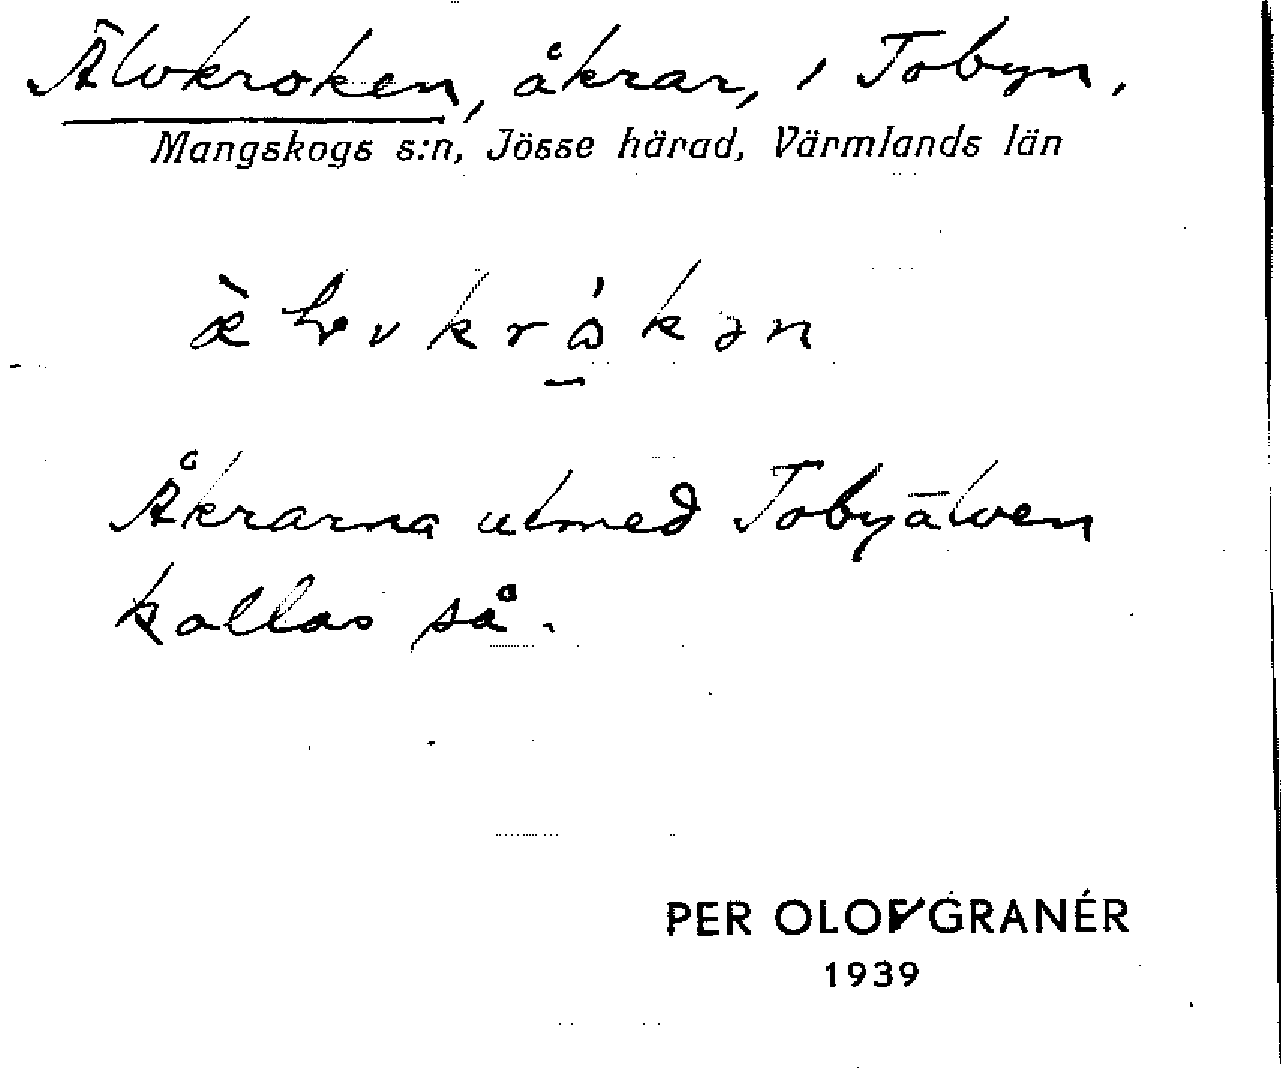 Älvkroken, åkrar, i Tobyn,
Mangskogs s:n, Jösse härad, Värmlands län
Åkrarna utmed Tobyälven
kallas så.
PER OLOV GRANÉR
1939